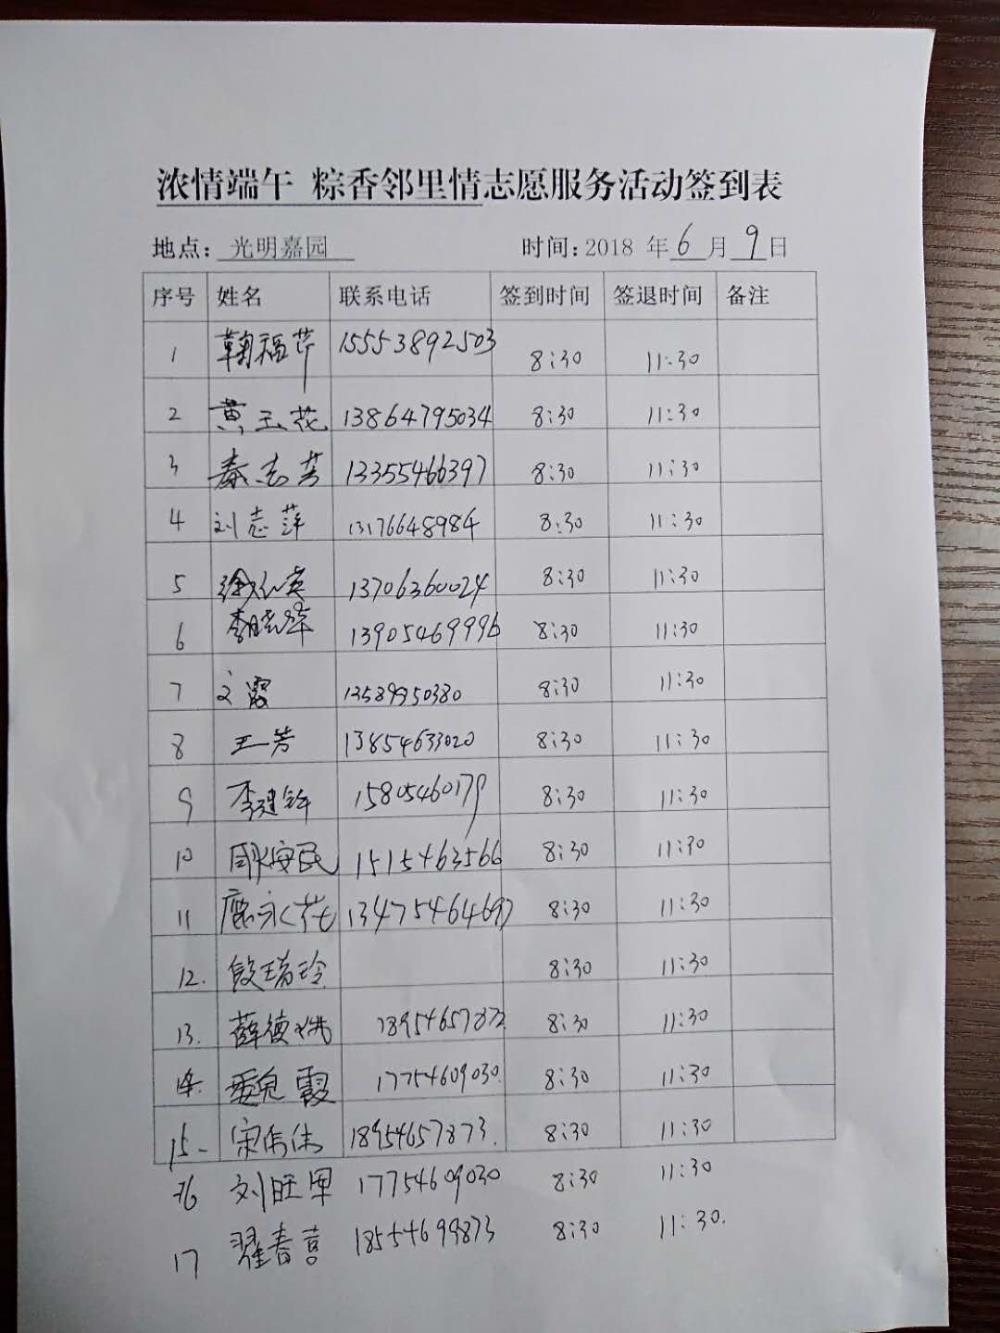 浓情端午 粽香邻里情志愿服务活动签到表
地点: 光明嘉园 时间: 2018 年 6 月 9 日
序号 姓名 联系电话 签到时间 签退时间 备注
1 鞠福芹 15553892503 8:30 11:30
2 黄玉花 13864795034 8:30 11:30
3 秦志芳 13355466397 8:30 11:30
4 刘志萍 13176648984 8:30 11:30
5 13706360024 8:30 11:30
6 李晓萍 13905469996 8:30 11:30
7 文霞 13589950380 8:30 11:30
8 王一芳 13854633020 8:30 11:30
9 李建锋 15805460179 8:30 11:30
10 1515463566 8:30 11:30
11 鹿永花 13475464697 8:30 11:30
12. 殷瑞玲 8:30 11:30
13. 薛德 18954657873 8:30 11:30
14. 霞 17754609030. 8:30 11:30
15- 宋伟 18954657873. 8:30 11:30
16 刘旺军 17754609030 8:30 11:30
17 翟春喜 18554699873 8:30 11:30.